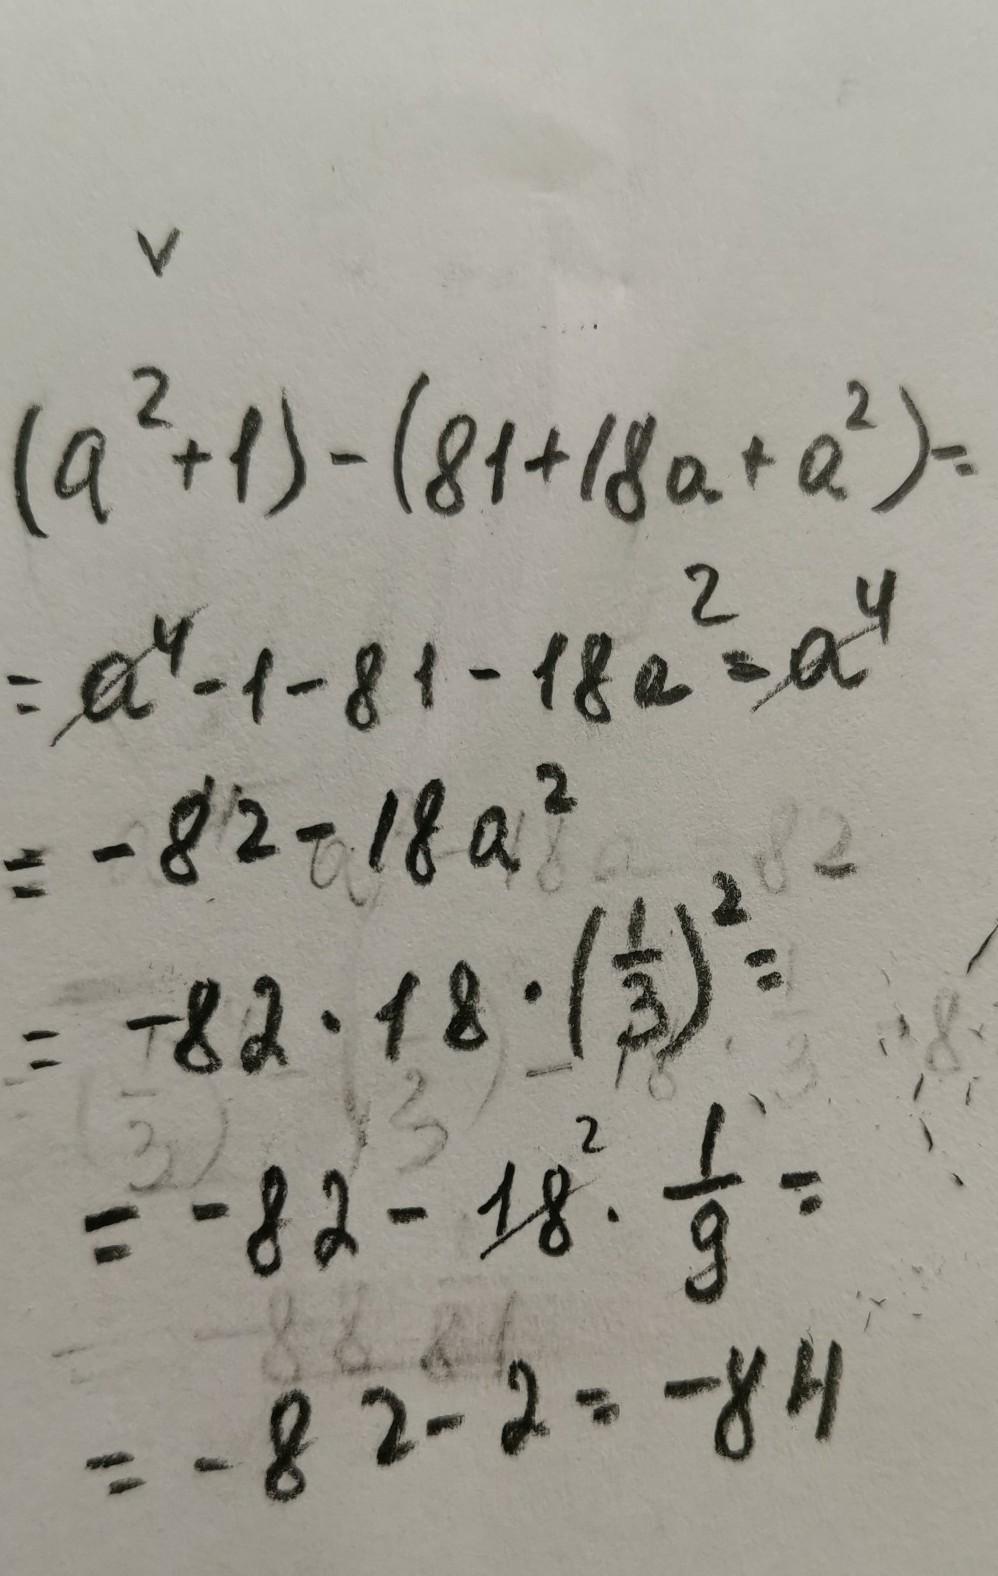 v
(a²+1)-(81+18a+a²)=
=a⁴-1-81-18a²=a⁴
=-82-18a²
=-82·18·(1/3)²=
=-82-18²·1/9=
=-82-2=-84